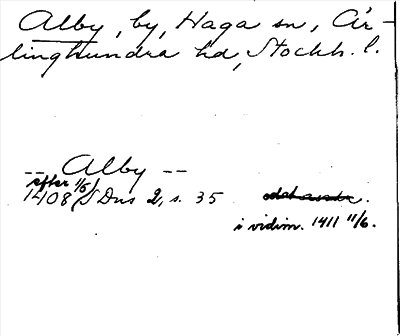 Alby, by, Haga sn, Är-
linghundra hd, Stockh. l.
-- Alby --
efter 1/5
1408 (SDns 2, s. 35
i vidim. 1411 11/6.